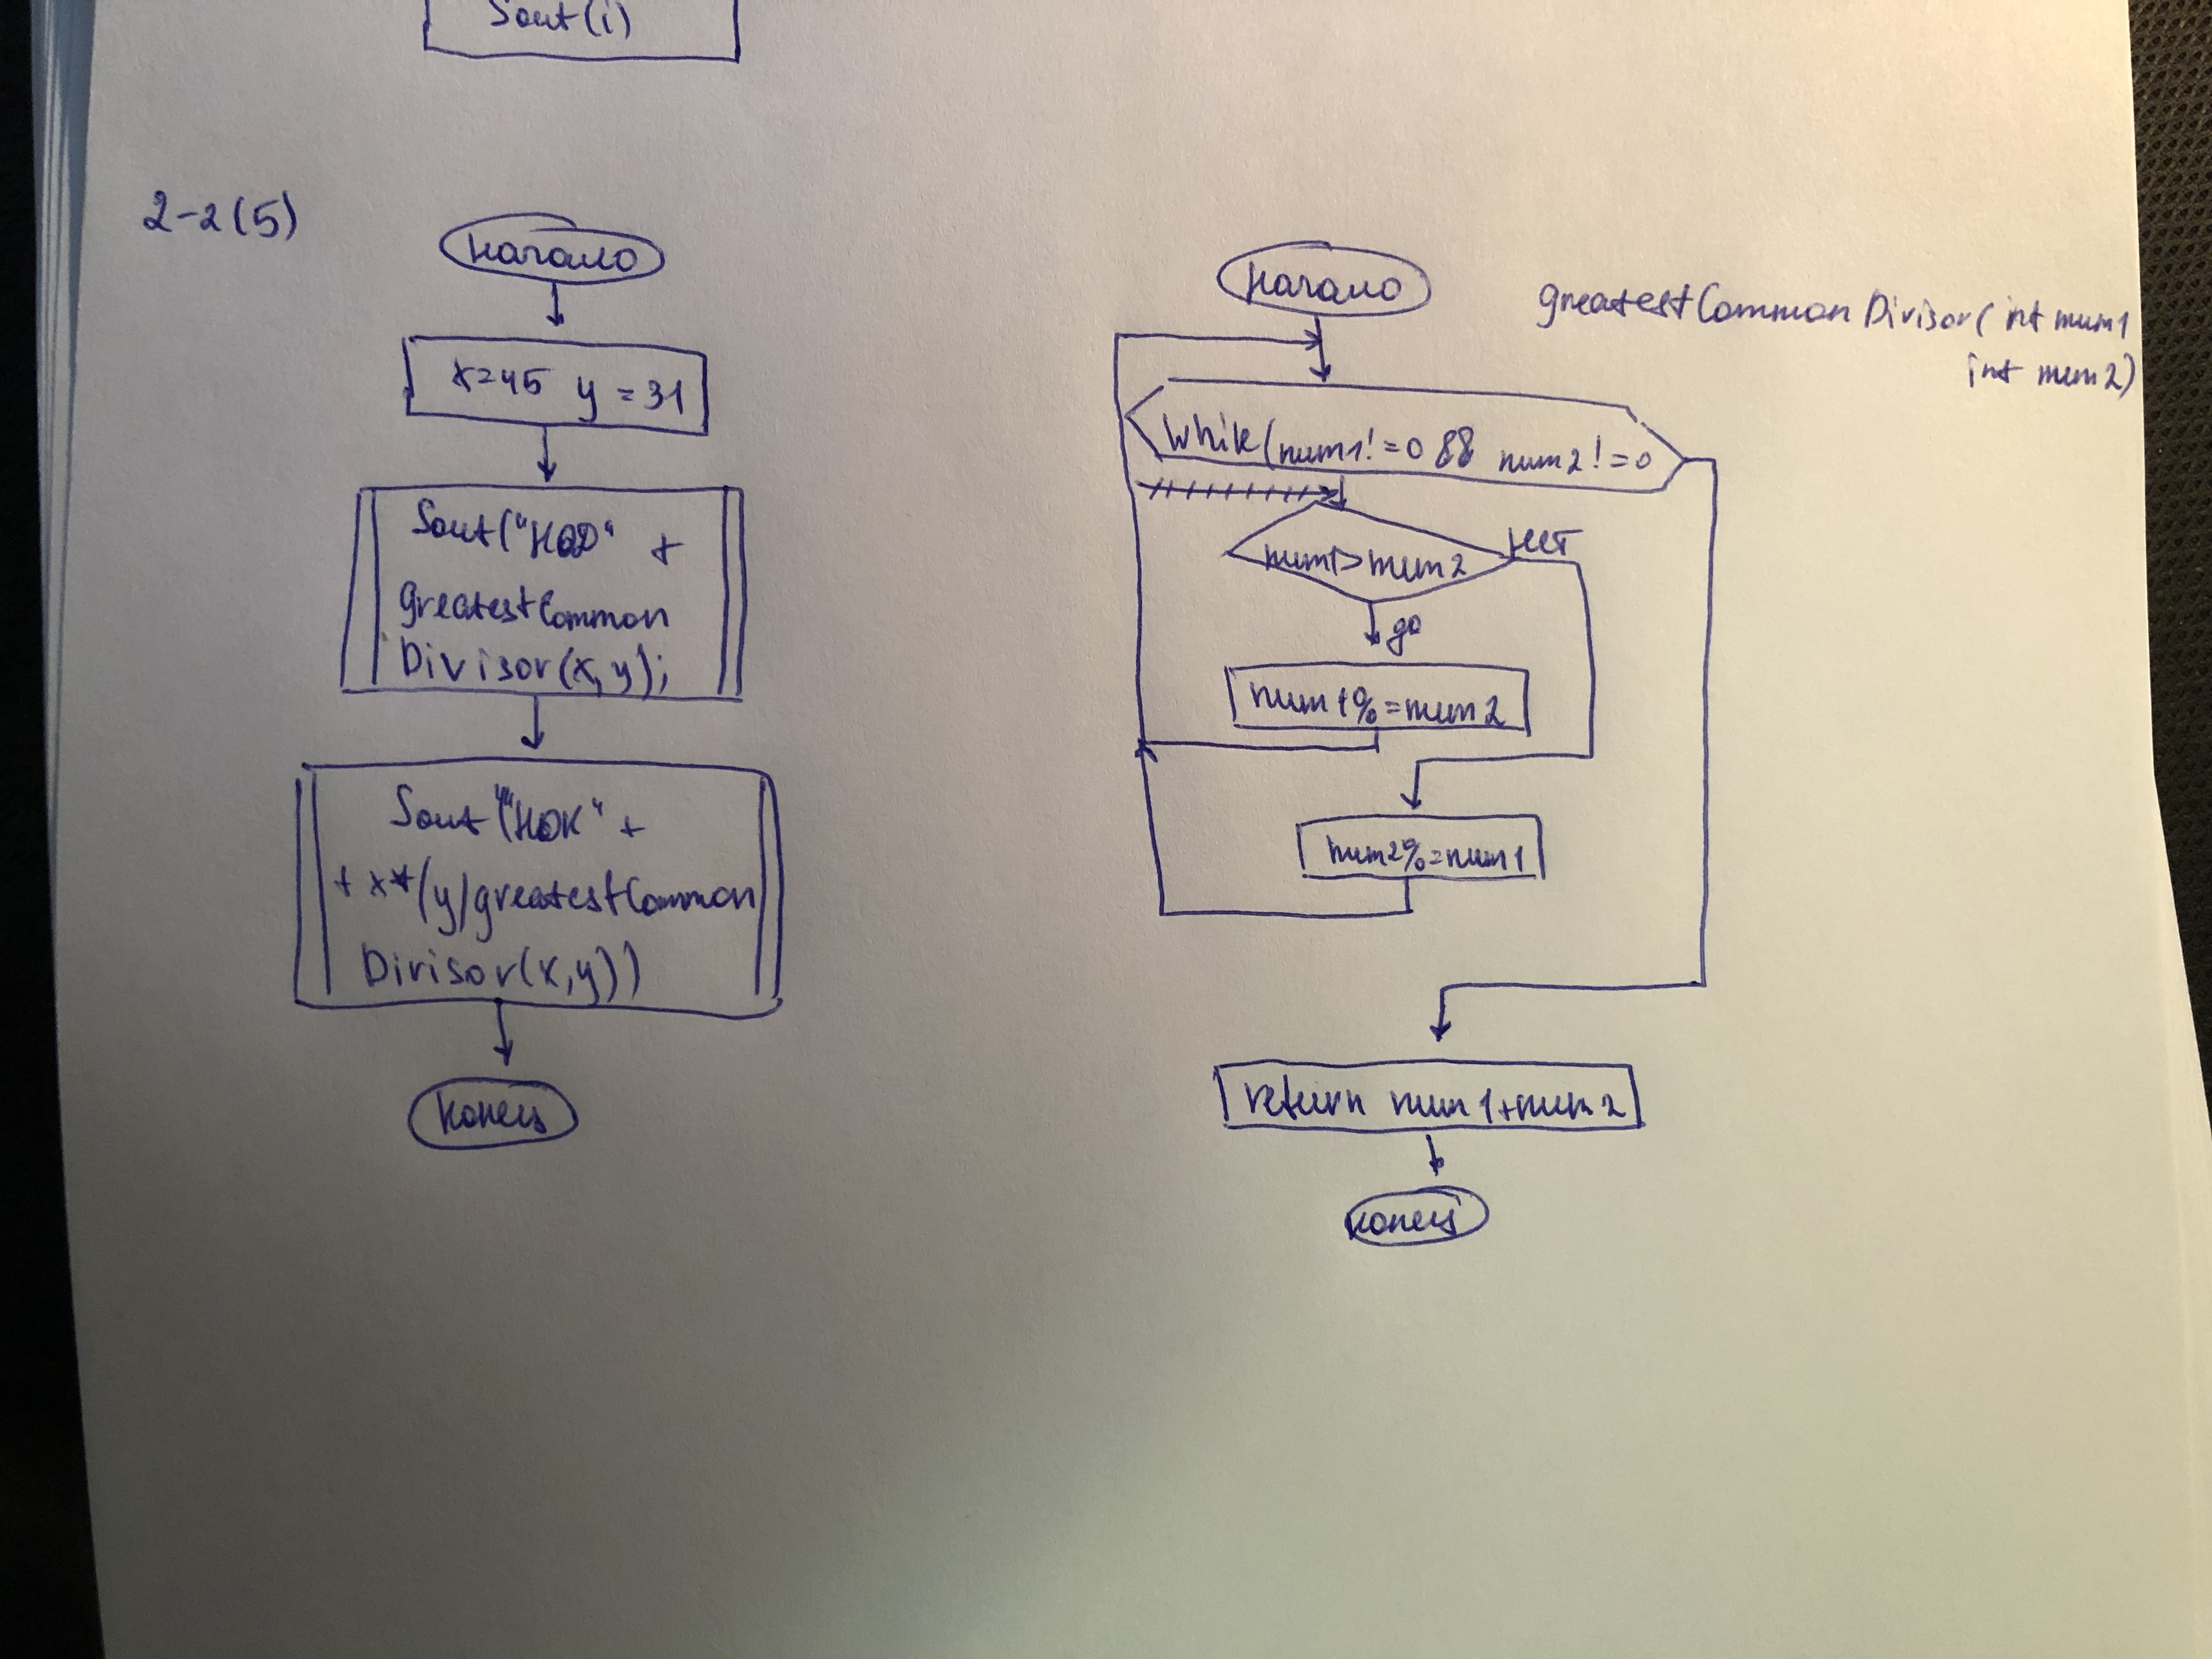 Sout(i)
2-2(5)
начало
x=45 y=31
Sout("НОД" +
greatestCommon
Divisor(x,y);
Sout(""НОК" +
+ x*(y/greatestCommon
Divisor(x,y))
конец
начало
greatestCommonDivisor(int num1
int num2)
while(num1!=0 && num2!=0
num1>num2
нет
да
num1%=num2
num2%=num1
return num1+num2
конец